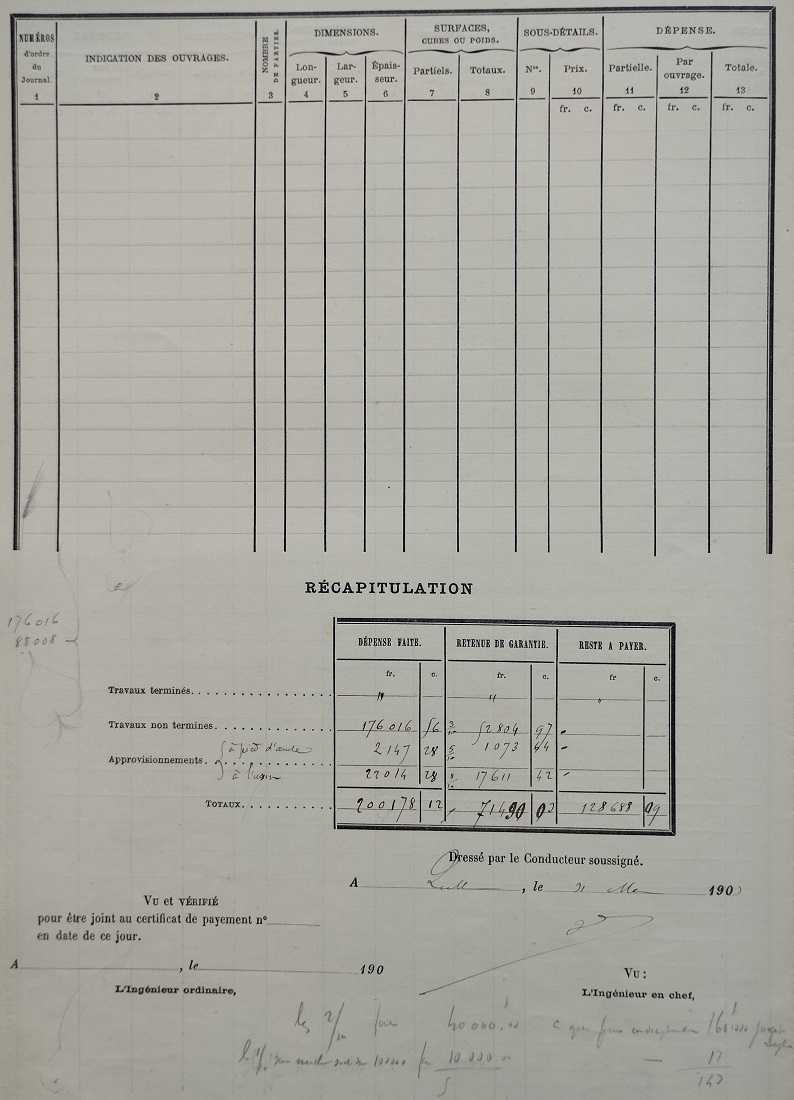 NUMÉROS d'ordre du Journal. 1
INDICATION DES OUVRAGES. 2
NOMBRE DE PARTIES. 3
DIMENSIONS.
Longueur. 4
Largeur. 5
Épaisseur. 6
SURFACES, CUBES OU POIDS.
Partiels. 7
Totaux. 8
SOUS-DÉTAILS.
Nos. 9
Prix. 10
DÉPENSE.
Partielle. 11
Par ouvrage. 12
Totale. 13
fr. c. fr. c. fr. c. fr. c.
RÉCAPITULATION
176016
88008
DÉPENSE FAITE. RETENUE DE GARANTIE. RESTE A PAYER.
fr. c. fr. c. fr c.
Travaux terminés. " "
Travaux non termines. 176016 56 3/10 52804 97
Approvisionnements. { à pied d'œuvre 2147 28 5/10 1073 64
à l'usine 22014 28 8/10 17611 42
TOTAUX. 200178 12 71490 02 128688 09
Dressé par le Conducteur soussigné.
A , le 31 Mai 190
VU et VÉRIFIÉ
pour être joint au certificat de payement n°
en date de ce jour.
A , le 190
L'Ingénieur ordinaire,
VU :
L'Ingénieur en chef,
les 2/10 40000.00 160.000
10000 10.000.00 17